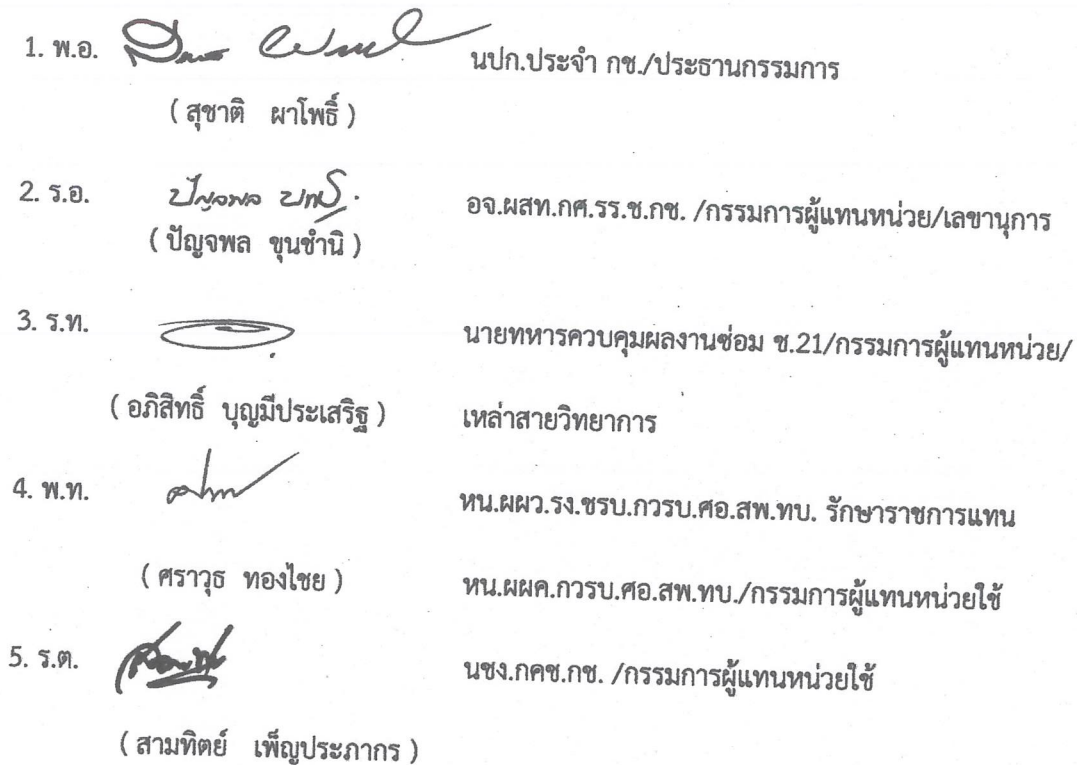 1. พ.อ. นปก.ประจำ กช./ประธานกรรมการ
( สุชาติ ผาโพธิ์ )
2. ร.อ. ปัญจพล อจ.ผสท.กศ.รร.ช.กช. /กรรมการผู้แทนหน่วย/เลขานุการ
( ปัญจพล ขุนชำนิ )
3. ร.ท. นายทหารควบคุมผลงานซ่อม ช.21/กรรมการผู้แทนหน่วย/
( อภิสิทธิ์ บุญมีประเสริฐ ) เหล่าสายวิทยาการ
4. พ.ท. หน.ผผว.รง.ชรบ.กวรบ.ศอ.สพ.ทบ. รักษาราชการแทน
( ศราวุธ ทองไชย ) หน.ผผค.กวรบ.ศอ.สพ.ทบ./กรรมการผู้แทนหน่วยใช้
5. ร.ต. นชง.กคช.กช. /กรรมการผู้แทนหน่วยใช้
( สามทิตย์ เพ็ญประภากร )